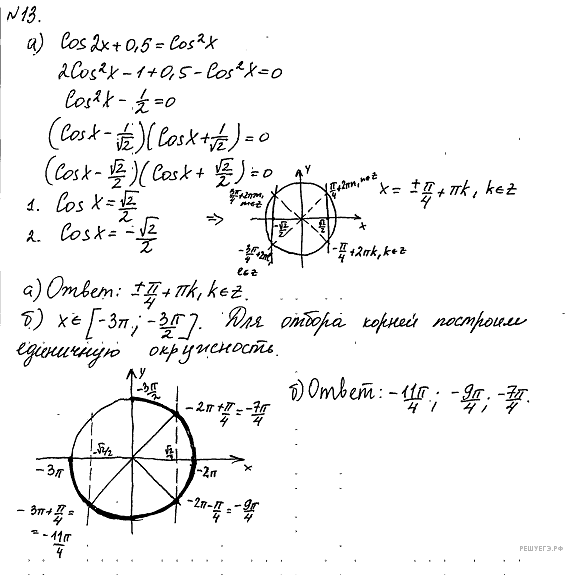 №13.
а) Cos2x+0,5=Cos²x
2Cos²x-1+0,5-Cos²x=0
Cos²x-1/2=0
(Cosx-1/√2)(Cosx+1/√2)=0
(Cosx-√2/2)(Cosx+√2/2)=0
1. Cosx=√2/2
2. Cosx=-√2/2
=>
y
3π/4+2πm, m∈z
π/4+2πn, n∈z
-√2/2
√2/2
x
-3π/4+2πl, l∈z
-π/4+2πk, k∈z
x=±π/4+πk, k∈z
а) Ответ: ±π/4+πk, k∈z.
б) x∈[-3π; -3π/2]. Для отбора корней построим
единичную окружность.
y
-3π/2
-2π+π/4=-7π/4
-√2/2
√2/2
-3π
-2π
x
-3π+π/4=
=-11π/4
-2π-π/4=-9π/4
б) Ответ: -11π/4; -9π/4; -7π/4.
РЕШУЕГЭ.РФ